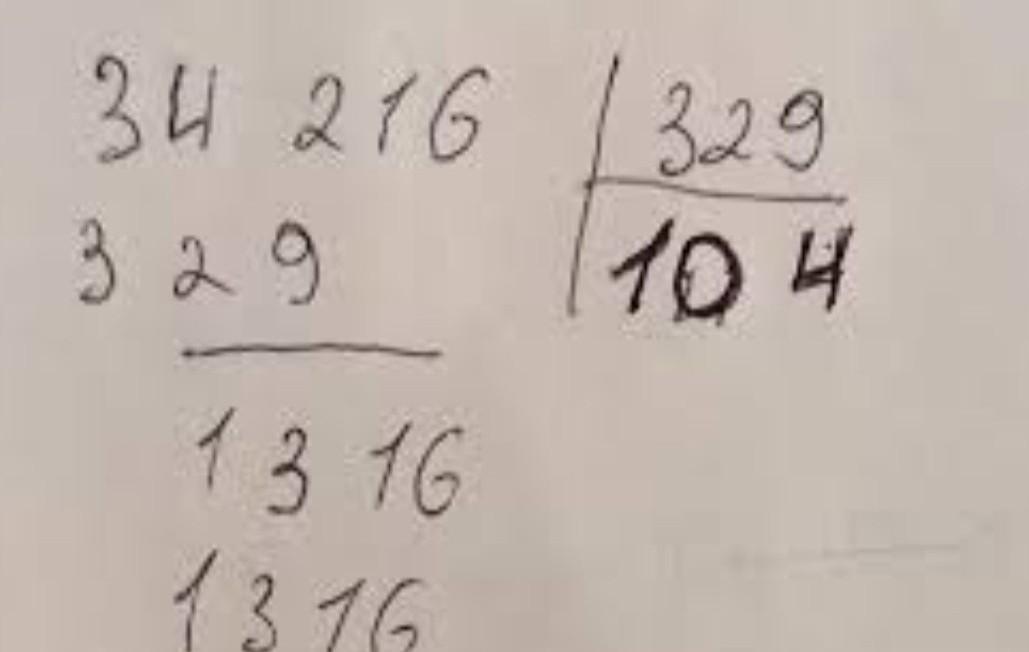 34 216 329
329 104
1316
1316